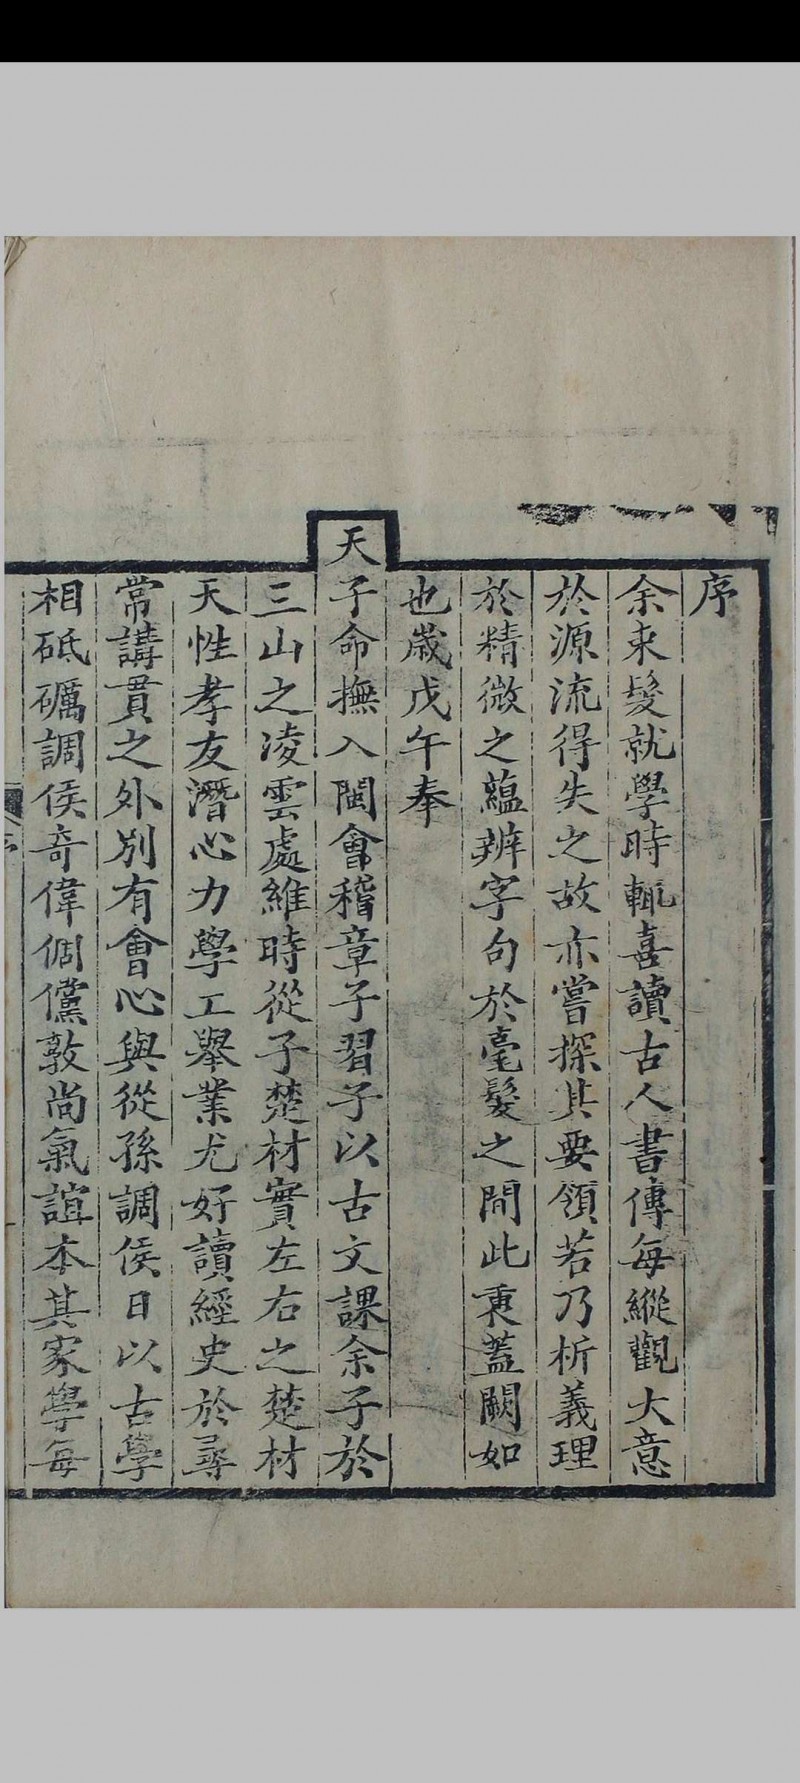 序
余束髮就學時輒喜讀古人書傳每縱觀大意
於源流得失之故亦嘗探其要領若乃析義理
於精微之蘊辨字句於毫髮之間此衷蓋闕如
也歲戊午奉
天子命撫入閩會稽章子習子以古文課余子於
三山之凌雲處維時從子楚材實左右之楚材
天性孝友潛心力學工舉業尤好讀經史於尋
常講貫之外別有會心與從孫調侯日以古學
相砥礪調侯奇偉倜儻敦尚氣誼本其家學每